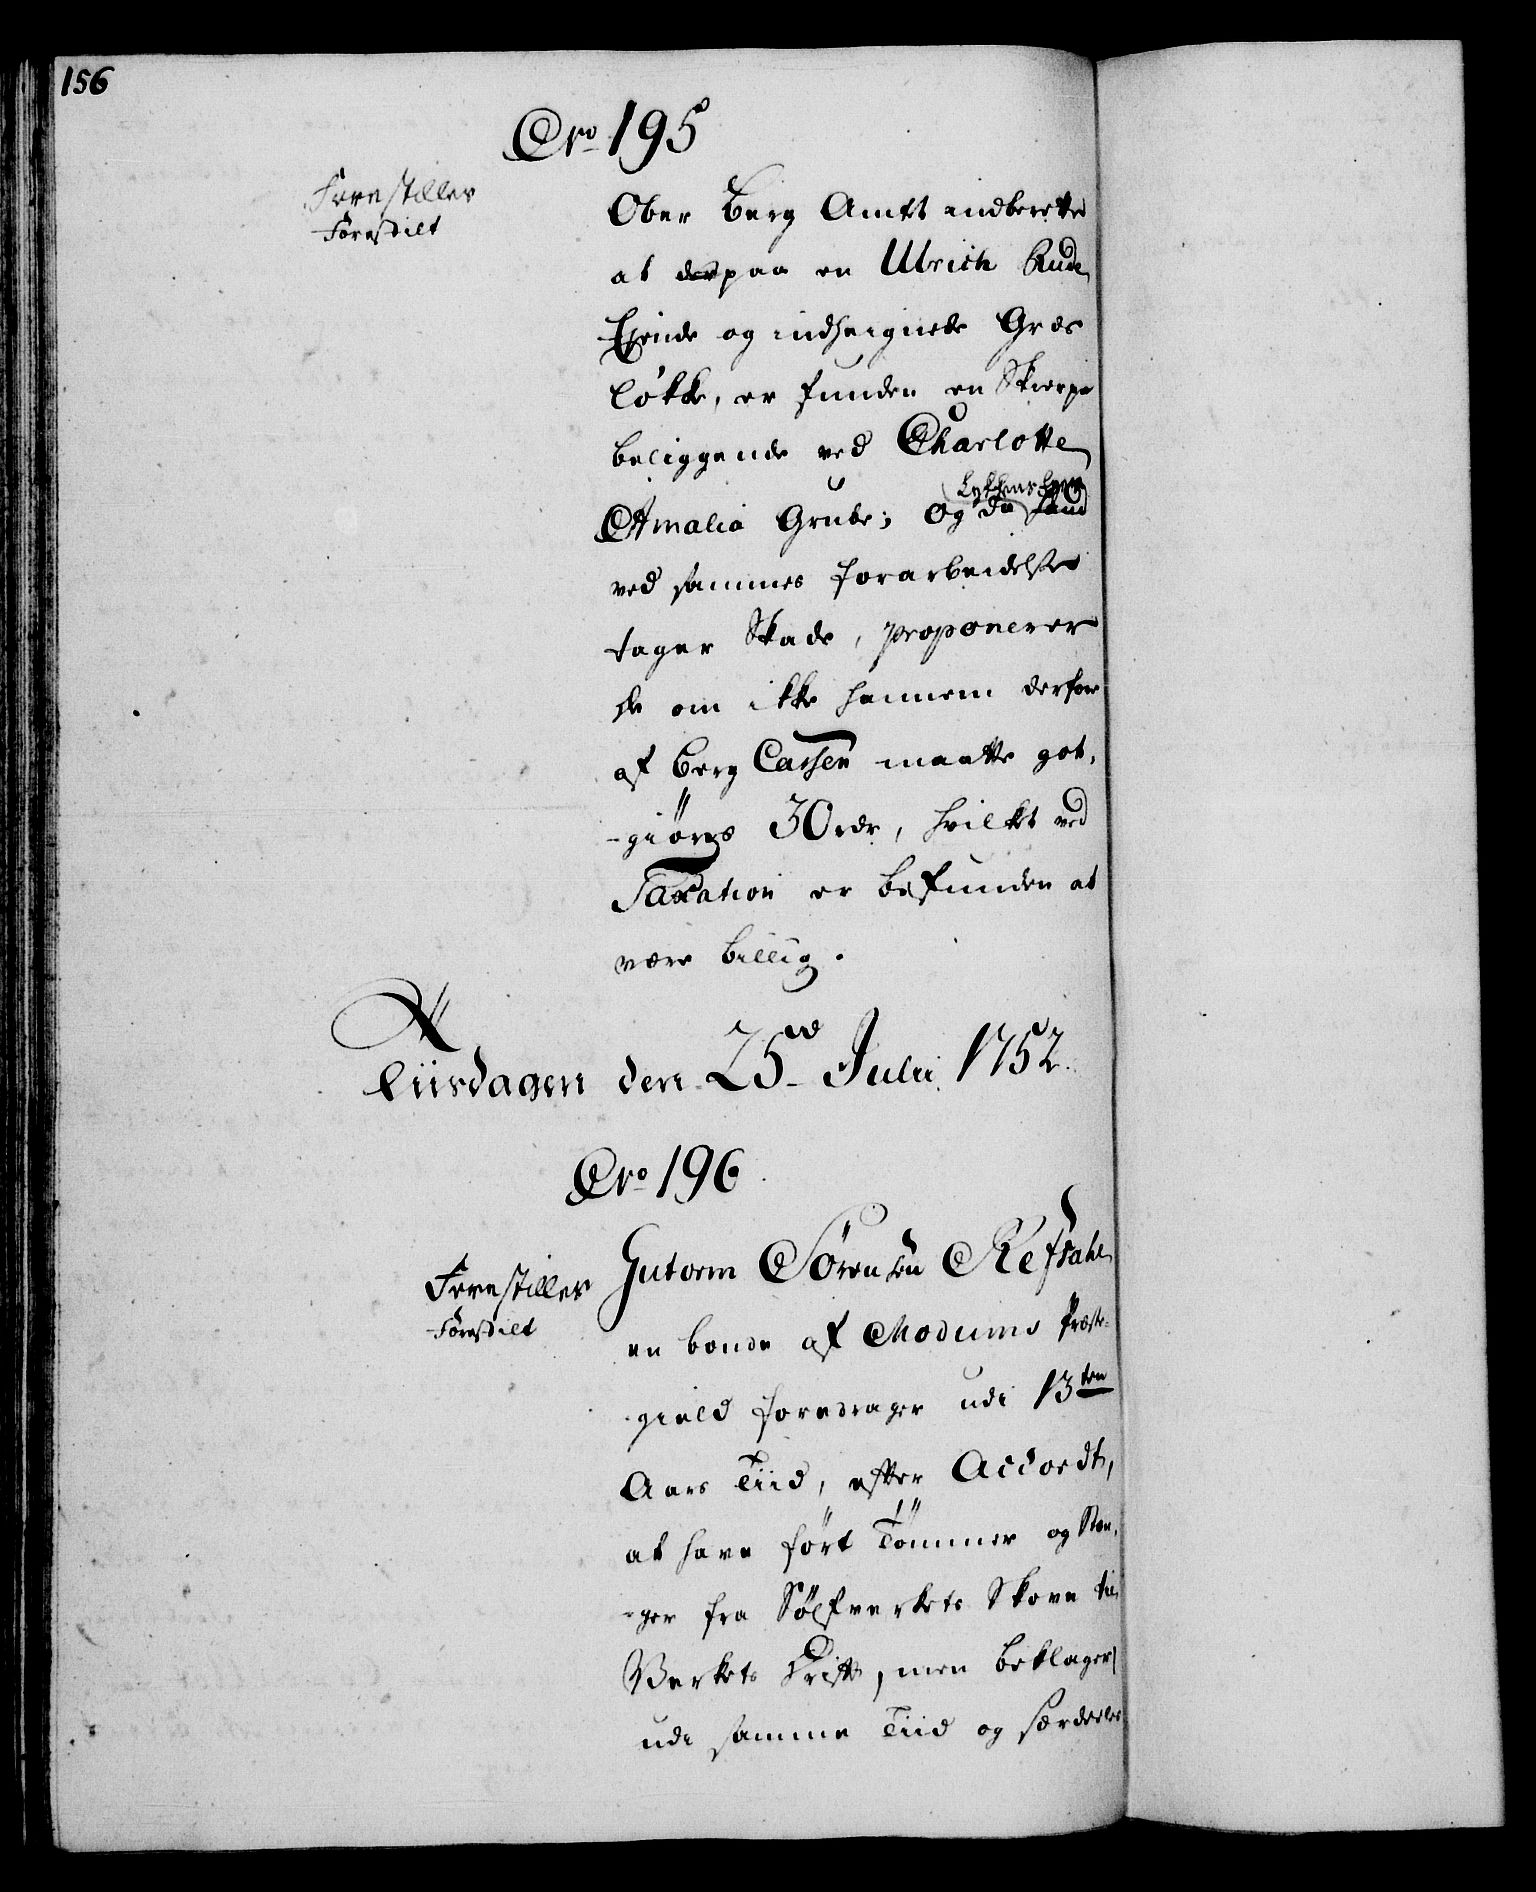 156
No 195
Forestilles
Forestilt
Ober Berg Amtet indberette
at paa en Ulrich Rude
Ejende og indheignede Græs
løkke, er funden en Skierpe
beliggende ved Charlotte
Amalia Grube; Og da
ved sammes forarbeidelse
tager Skade, proponerer
de om ikke hannem derfore
af Berg Cassen maatte got,
-giøres 30 rdr, hvilket ved
Taxation er befunden at
være billig.
Tiisdagen den 25de Julii 1752.
No 196.
Forestilles
Forestilt
Gutorm Sørensen Refsahl
en bonde af Modums Præste-
gield foredrager udi 13ten
Aars Tiid, efter Accordt,
at have ført Tømmer og Stæn,
-ger fra Sølfverkets Skove til
Verkets Drift, men beklager
udi samme Tiid og særdeeles